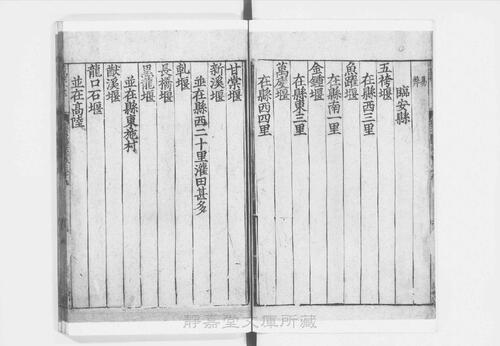 臨安縣
五袴堰
在縣西三里
魚躍堰
在縣南一里
金鍾堰
在縣東三里
萬歲堰
在縣西四里
甘棠堰
新溪堰
並在縣西二十里灌田甚多
乹堰
長橋堰
黒龍堰
並在縣東施村
猷溪堰
龍口石堰
並在高陸
靜嘉堂文庫所藏